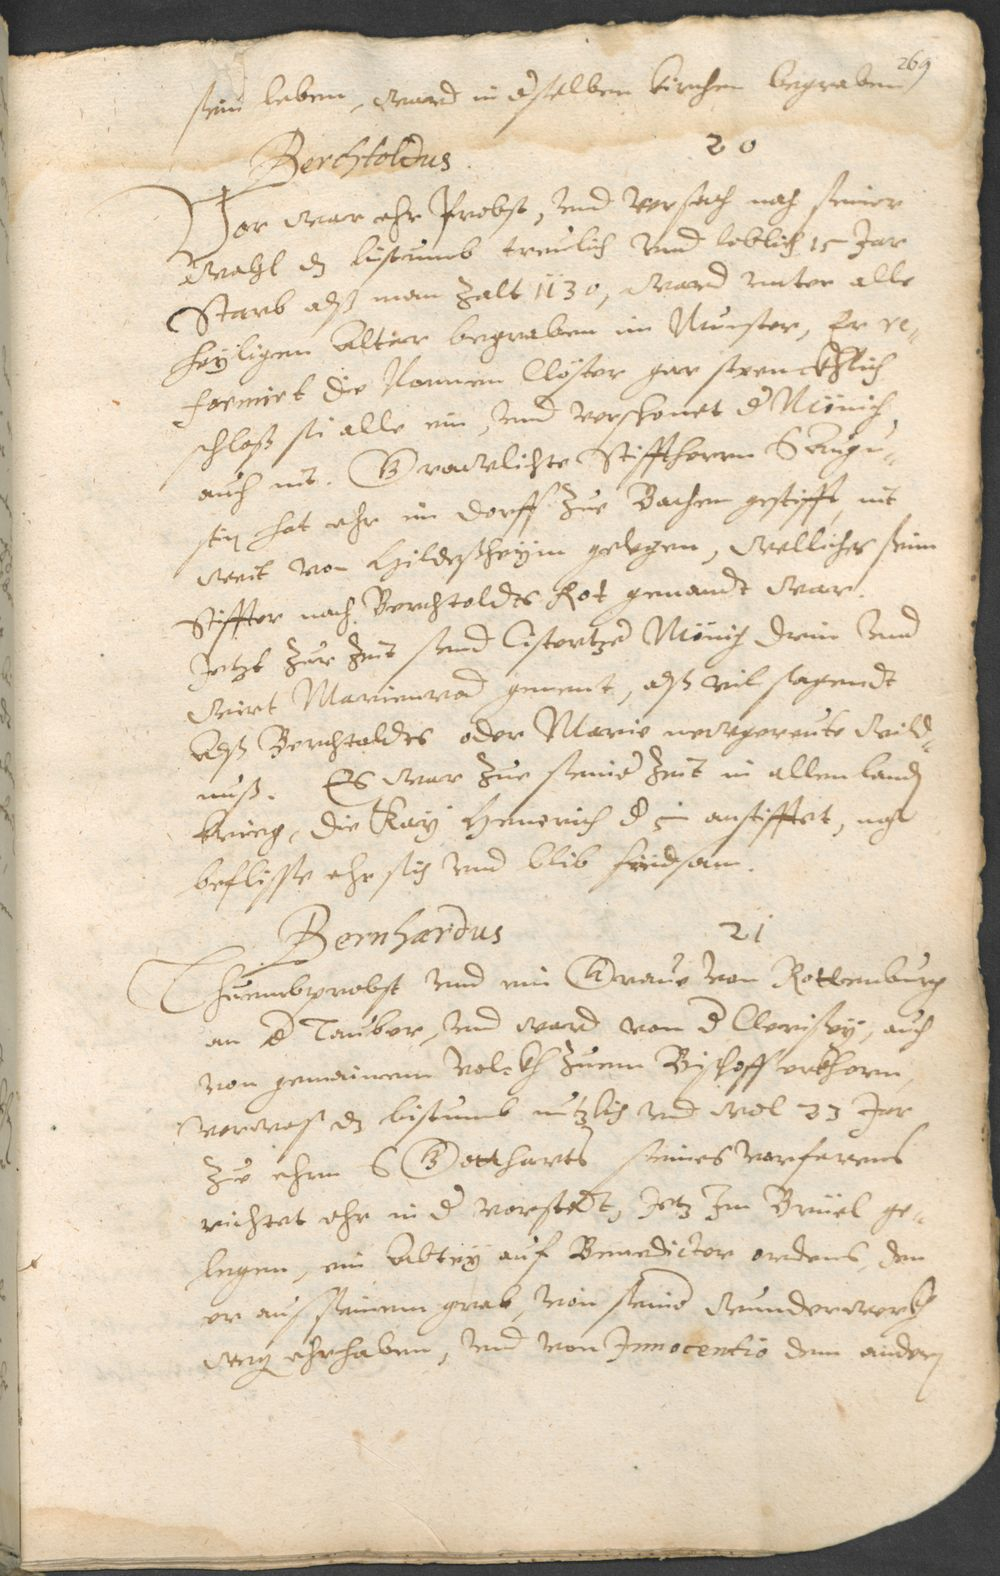 269
sein leben, ward in dselben kirchen begraben
Berchtoldus. 20
Vor war ehr Probst, und versach nach seiner
Wahl dz bistumb treulich und loblich 15 Jar
Starb alß man zalt 1130, ward unter alle
heyligen Altar begraben im Munster, Er re„
formirt die Nonnen Clöster gar strenckhlich
schloß si alle ein, und verschonet d Münich
auch nit. Stiffthern S Augu„
stin hat ehr im dorff zue Bachen gestifft, nit
weit von Hildeßheym gelegen, wellicher seim
Stiffter nach Berchtoldts Rot genandt war.
Jetzt zur Zeit send Cistertzer Münich drin und
wirt Marienrod genent, alß vil sagendt
Alß Berchtoldts oder Marie neuwgereute Wild„
nuß. Es war zue seiner Zeit in allen landen
krieg, die Kay Henrich d 5 anstifftet, noch
beflisse ehr sich und blib fridsam.
Bernhardus 21
Thuembprobst und ein Graue von Rottenburg
an d Tauber, und ward von d Clerisey, auch
von gemainem Volckh zuem Bischoff erkhorn
verwas dz bistumb nutzlich und wol 23 Jar
Zue ehrn S Gottharts seines vorfarens
richtet ehr in d vorstadt, Jetz Im Brüel ge„
legen, ein Abtey auf Benedicter ordens, den
er auß seinem grab, von seine wunderwerckh
weg ehrhaben, und von Innocentio dem andern